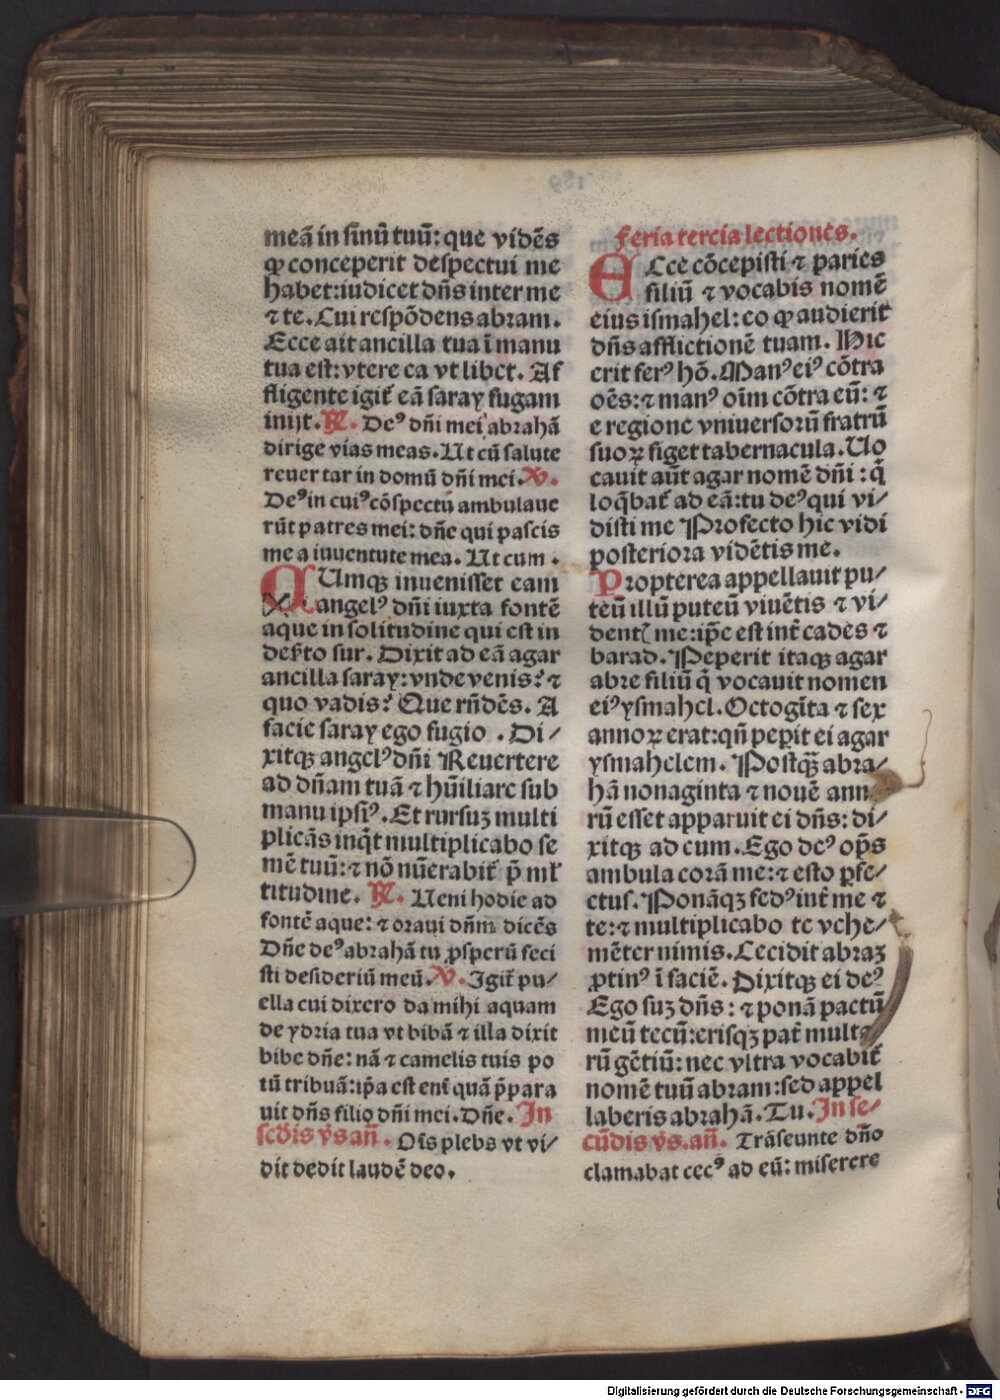 meā in sinū tuū: que vidēs
ꝙ conceperit despectui me
habet: iudicet dn̄s inter me
⁊ te. Cui respōdens abram.
Ecce ait ancilla tua ī manu
tua est: vtere ea vt libet. Af
fligente igit̄ eā saray fugam
inijt. R. Deꝰ dn̄i mei abrahā
dirige vias meas. Ut cū salute
reuertar in domū dn̄i mei. V.
Deꝰ in cuiꝰ cōspectū ambulaue
rūt patres mei: dn̄e qui pascis
me a iuuentute mea. Ut cum.
QUmqꝫ inuenisset eam
angelꝰ dn̄i iuxta fontē
aque in solitudine qui est in
des̄to sur. Dixit ad eā agar
ancilla saray: vnde venis? ⁊
quo vadis? Que rn̄dēs. A
facie saray ego fugio. Di/
xitqꝫ angelꝰ dn̄i Reuertere
ad dn̄am tuā ⁊ hūiliare sub
manu ipsiꝰ. Et rursuꝫ multi
plicās inq̄t multiplicabo se
mē tuū: ⁊ nō nūerabit̄ p̄ ml̄
titudine. R. Ueni hodie ad
fontē aque: ⁊ oraui dn̄m dicēs
Dn̄e deꝰ abrahā tu ꝓsperū feci
sti desideriū meū. V. Igit̄ pu/
ella cui dixero da mihi aquam
de ydria tua vt bibā ⁊ illa dixit
bibe dn̄e: nā ⁊ camelis tuis po
tū tribuā: ip̄a est enī quā p̄para
uit dn̄s filio dn̄i mei. Dn̄e. In
scd̄is v̄s an̄. Om̄s plebs vt vi/
dit dedit laudē deo.
feria tercia lectiones.
ECce cōcepisti ⁊ paries
filiū ⁊ vocabis nomē
eius ismahel: eo ꝙ audierit
dn̄s afflictionē tuam. Hic
erit ferꝰ hō. Manꝰ eiꝰ cōtra
oēs: ⁊ manꝰ oīm cōtra eū: ⁊
e regione vniuersorū fratrū
suoꝝ figet tabernacula. Uo
cauit aūt agar nomē dn̄i: q̄
loq̄bat̄ ad eā: tu deꝰ qui vi/
disti me Profecto hic vidi
posteriora vidētis me.
Propterea appellauit pu/
teū illū puteū viuētis ⁊ vi/
dent me: ip̄e est int̄ cades ⁊
barad. Peperit itaqꝫ agar
abre filiū q̄ vocauit nomen
eiꝰ ysmahel. Octogīta ⁊ sex
annoꝝ erat: qn̄ pep̄it ei agar
ysmahelem. Postq̄ꝫ abra/
hā nonaginta ⁊ nouē ann
rū esset apparuit ei dn̄s: di/
xitqꝫ ad eum. Ego deꝰ op̄s
ambula corā me: ⁊ esto ꝑfe/
ctus. Ponāqꝫ fedꝰ int̄ me ⁊
te: ⁊ multiplicabo te vehe/
mēter nimis. Cecidit abraꝫ
ꝓtinꝰ ī faciē. Dixitqꝫ ei deꝰ
Ego suꝫ dn̄s: ⁊ ponā pactū
meū tecū: erisqꝫ pat̄ multa
rū gētiū: nec vltra vocabit̄
nomē tuū abram: sed appel
laberis abrahā. Tu. In se/
cūdis v̄s. an̄. Trāseunte dn̄o
clamabat cecꝰ ad eū: miserere
Digitalisierung gefördert durch die Deutsche Forschungsgemeinschaft - DFG